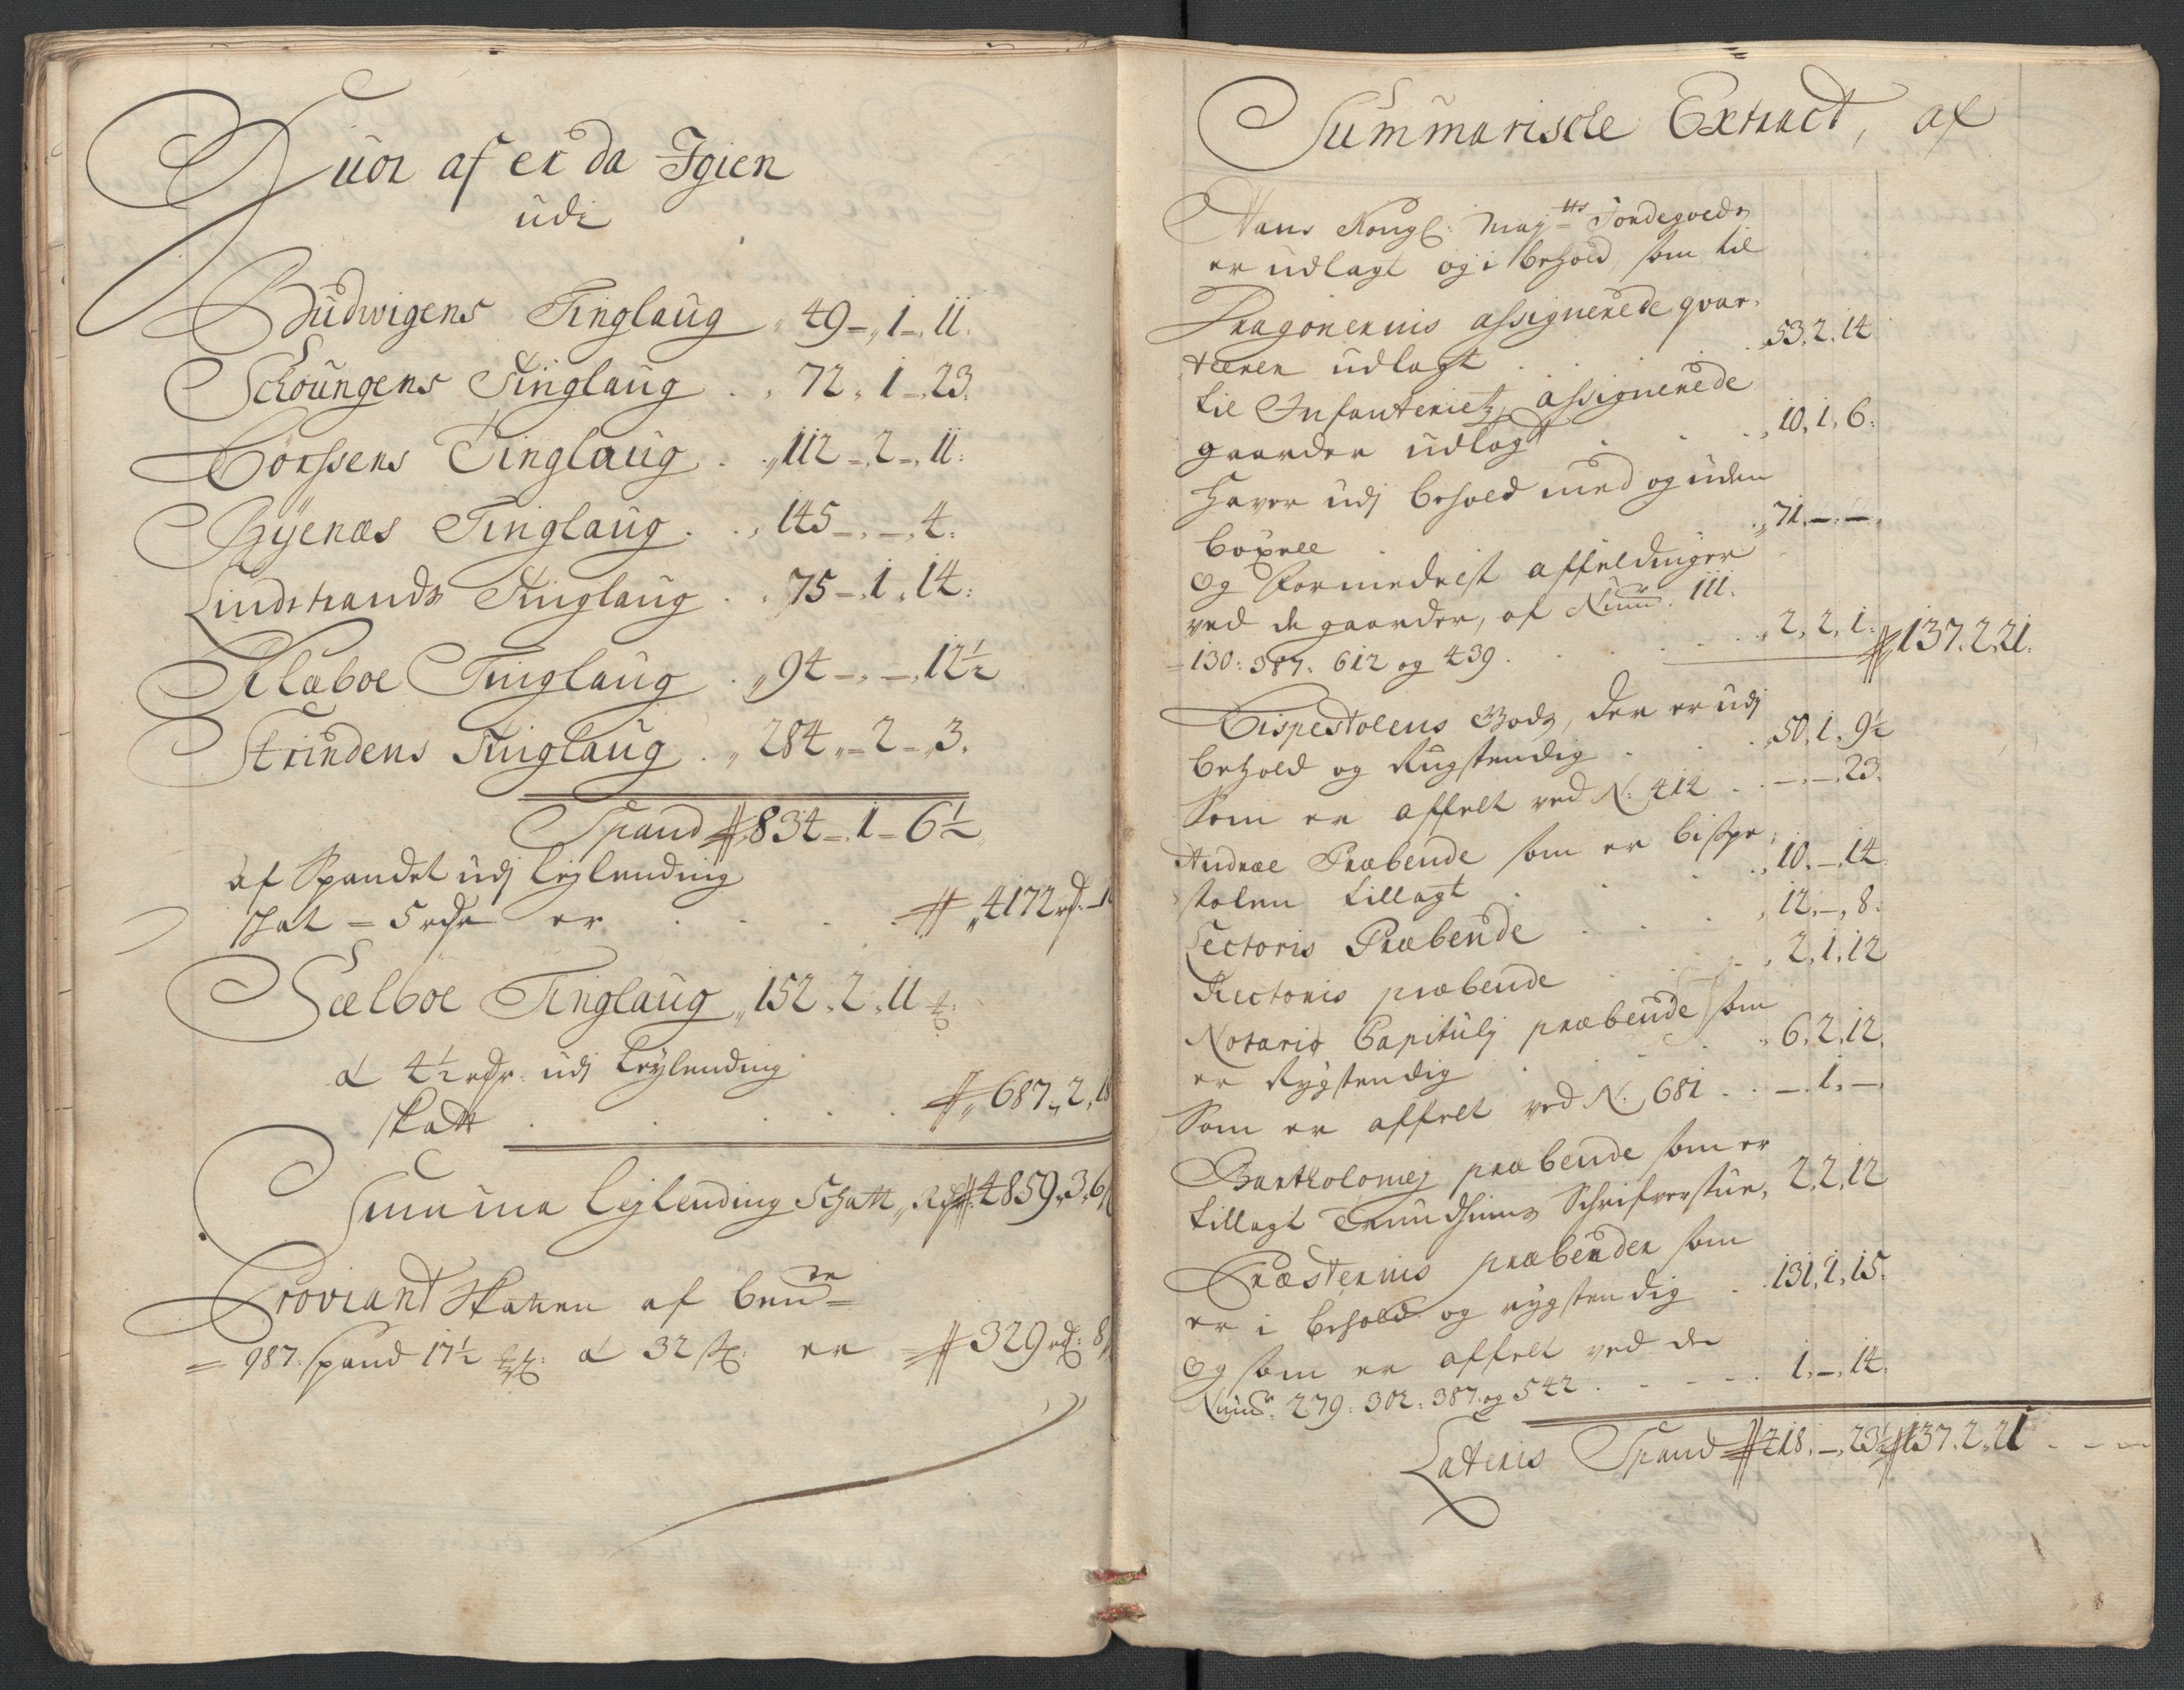 Huor af er da Igien
udi
Budwigens Tinglaug „ 49 – „ 1 – „ 11.
Schoungens Tinglaug . „ 72 „ 1 – „ 23.
Börssens Tinglaug . „ 112 – „ 2 – „ 11.
Byenæs Tinglaug . „ 145 – „ – „ 4.
Lindstrands Tinglaug . „ 75 – „ 1 „ 14.
Klæboe Tinglaug . „ 94 – „ – „ 12½
Strindens Tinglaug . „ 284 „ – 2 – „ 3.
Spand 834 – „ 1 – 6½
af Spandet udj Lejlending
skat = 5 rdr er . . . . 4172 rd. –
Sælboe Tinglaug „ 152 „ 2 „ 11
á 4½ rdr. udj Leylending
skatt . . . . „ 687 „ 2 „ 18
Summa Lejlending Schatt „ Rdr 4859 „ 3 „ 6
Proviant Skatten af bem.te
= 987. spand 17½ á 32 er 329 rd: 8
Summarische Extract, af
Hans Kongl: May.tts Jordegods
er udlagt og i behold, som til
Dragonernis assignerede qvar-
teerer udlagt . . „ 53. 2. 14
til Infanteriets assignerede
gaarder udlagt . . . „ 10. 1. 6.
Haver udj behold med og uden
böxell . . „ 71. – . – .
og formedelst affeldninger
ved de gaarder, af Num.r 111.
130: 387. 612 og 439 . . . „ 2. 2. 1. 137. 2. 21.
Bispestolens Gods, der er udj
behold og Rygstendig . . „ 50. 1. 9½
Som er affelt ved N. 414 . . – . – . 23.
Andreæ Præbende som er bispe-
stolen tillagt . . . „ 10. – . 14.
Lectoris Præbende . . . „ 12. – . 8.
Rectoris præbende . . . „ 2. 1. 12
Notarij Capitulj præbende som
er Rygstendig . . . „ 6. 2. 12.
Som er affelt ved N. 681 . . – . 1. – .
Bartholomej præbende som er
tillagt Trundhiems Schrifverstue, 2. 2. 12
Præsternis præbender som
er i behold og rygstendig . 131. 1. 15.
og som er affelt ved de
Num.r 279. 302. 387. og 542 . . . . 1. – . 14.
Lateris Spand 218. – . 23½ 137. 2. 21